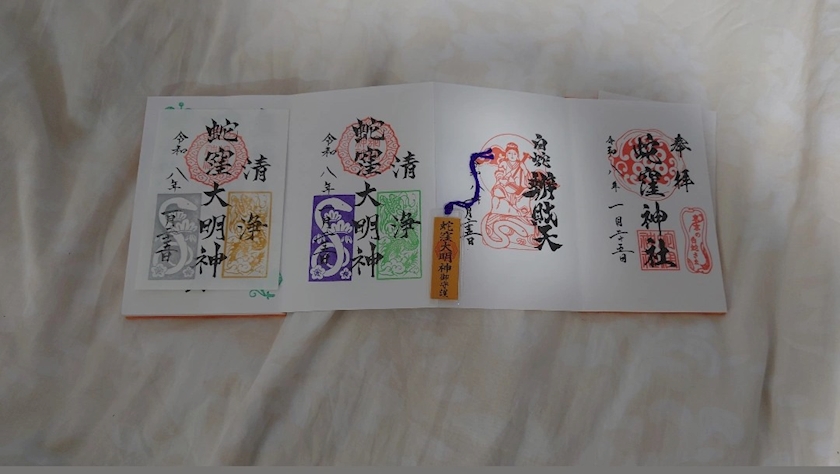 奉拝
蛇窪神社
令和八年 一月二十五日
白蛇辨財天
月二十五日
蛇窪大明神御守護
清浄
蛇窪大明神
令和八年
一月二十五日
清浄
蛇窪大明神
令和八年
一月二十五日